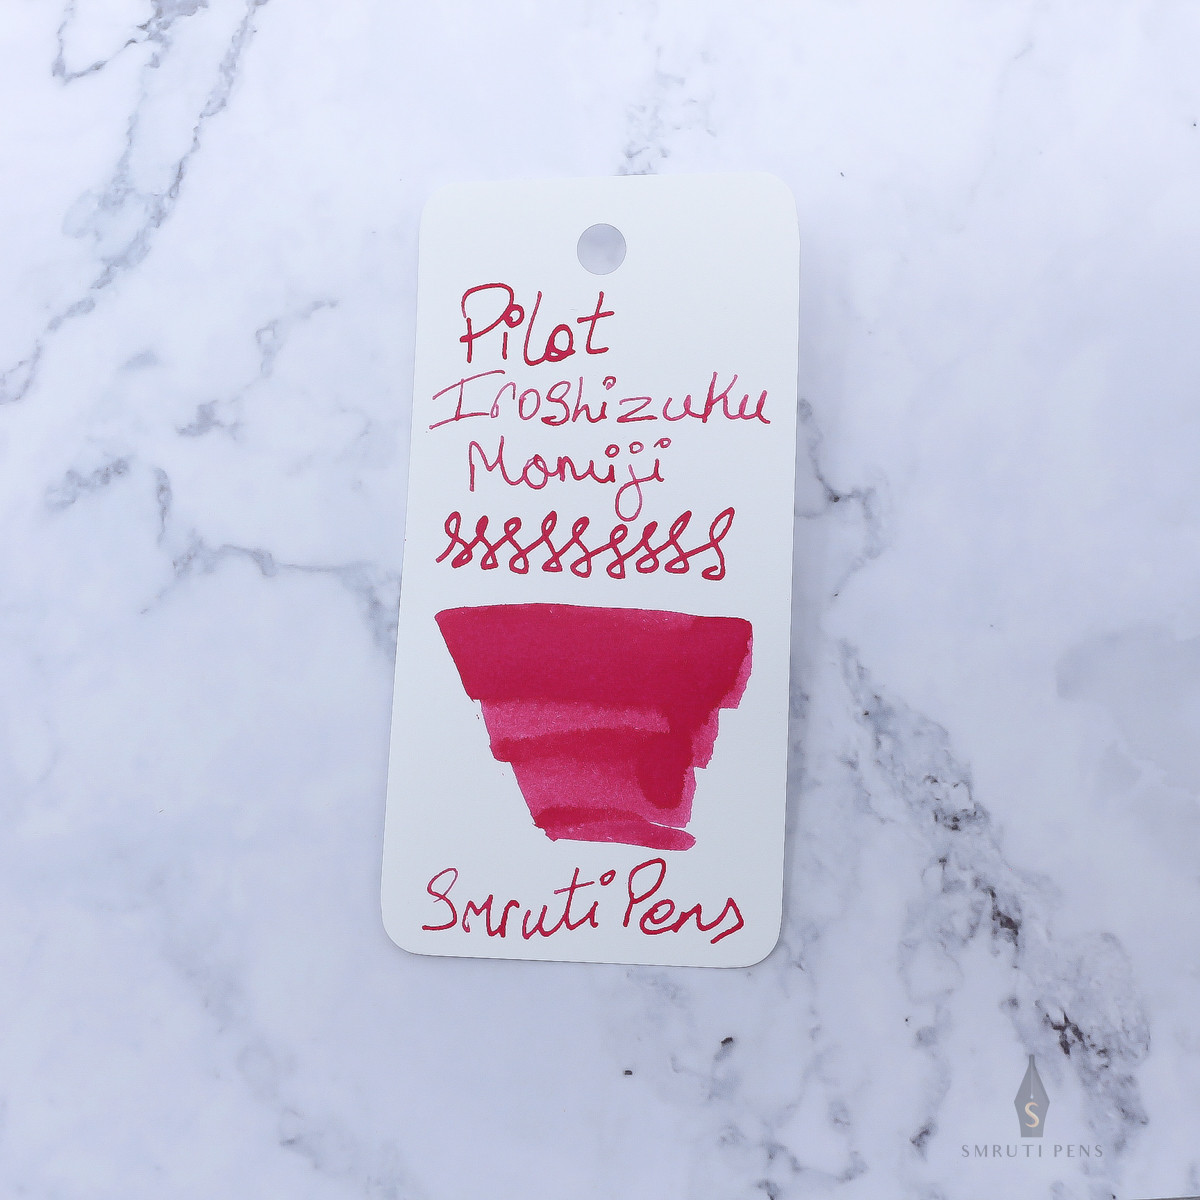 Pilot
Iroshizuku
Momiji
sssssssss
Smruti Pens
S
SMRUTI PENS